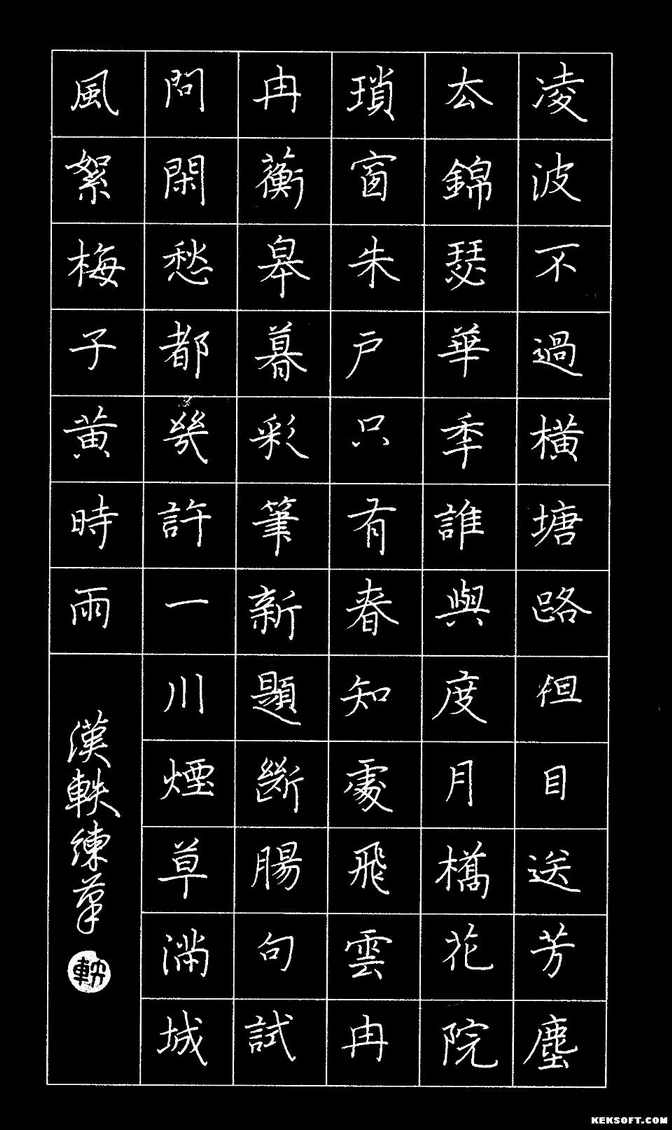 凌波不過橫塘路但目送芳塵
厺錦瑟華秊誰與度月橋花院
瑣窗朱戶只有春知處飛雲冉
冉蘅皋暮彩筆新題斷腸句試
問閑愁都幾許一川煙草滿城
風絮梅子黃時雨
漢軼練筆
KEKSOFT.COM